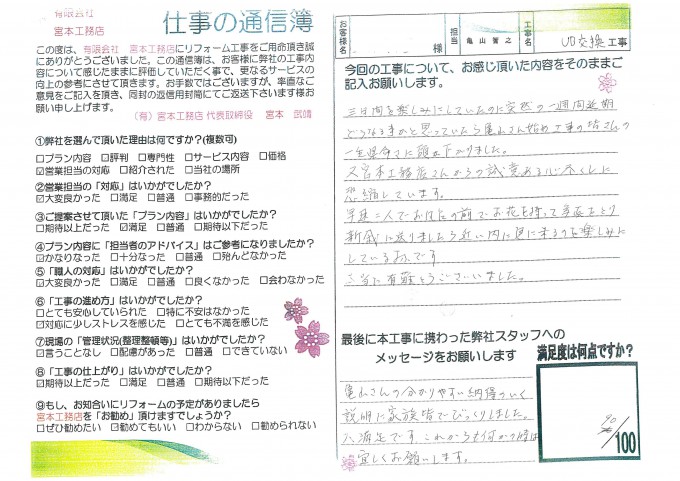 有限会社
宮本工務店
仕事の通信簿
この度は、有限会社 宮本工務店にリフォーム工事をご用命頂き誠
にありがとうございました。この通信簿は、お客様に弊社の工事内
容について感じたままに評価していただく事で、更なるサービスの
向上の参考にさせて頂きます。お手数ではございますが、率直なご
意見をご記入を頂き、同封の返信用封筒にてご返送下さいます様お
願い申し上げます。
(有)宮本工務店 代表取締役 宮本 武靖
①弊社を選んで頂いた理由は何ですか?(複数可)
□プラン内容 □評判 □専門性 □サービス内容 □価格
☑営業担当の対応 □紹介された □当社の場所
②営業担当の「対応」はいかがでしたか?
☑大変良かった □満足 □普通 □事務的だった
③ご提案させて頂いた「プラン内容」はいかがでしたか?
□期待以上だった ☑満足 □普通 □期待以下だった
④プラン内容に「担当者のアドバイス」はご参考になりましたか?
☑かなりなった □十分なった □普通 □殆んどなかった
⑤「職人の対応」はいかがでしたか?
☑大変良かった □満足 □普通 □良くなかった □会わなかった
⑥「工事の進め方」はいかがでしたか?
□とても安心していられた □特に不安はなかった
☑対応に少しストレスを感じた □とても不満を感じた
⑦現場の「管理状況(整理整頓等)」はいかがでしたか?
☑言うことなし □配慮があった □普通 □できていない
⑧「工事の仕上がり」はいかがでしたか?
☑期待以上だった □満足 □普通 □期待以下だった
⑨もし、お知合いにリフォームの予定がありましたら
宮本工務店を「お勧め」頂けますでしょうか?
□ぜひ勧めたい ☑勧めてもいい □わからない □勧められない
お客様名 様 担当 亀山智之 UB交換工事
今回の工事について、お感じ頂いた内容をそのままご
記入お願いします。
三日間を楽しみにしていたのに突然の一週間延期
どうなる事かと思っていたら亀山さん始め工事の皆さんの
一生懸命さに頭が下がりました。
又宮本工務店さんからの誠意ある心尽くしに
恐縮しています。
早速二人でお
新
しているようです
本当に有難とうございました。
最後に本工事に携わった弊社スタッフへの
メッセージをお願いします
亀山さんの分かりやすい納得のいく
説明に家族皆でびっくりしました。
大満足です これからも何かの時は
宜しくお願いします。
満足度は何点ですか?
90/100